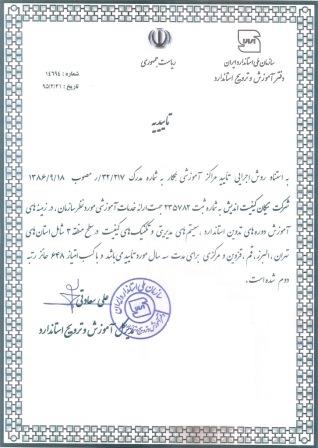 ریاست جمهوری
سازمان ملی استاندارد ایران
دفتر آموزش و ترویج استاندارد
شماره : ۱۴۶۹۴
تاریخ : ۹۵/۲/۲۱
تاییدیه
به استناد روش اجرایی تایید مراکز آموزشی همکار به شماره مدرک ۳۲/۲۱۷/ر مصوب ۱۳۸۶/۹/۱۸
شرکت نیکان کیفیت اندیش به شماره ثبت ۲۳۵۷۸۲ جهت ارائه خدمات آموزشی مورد نظر سازمان، در زمینه های
آموزش دوره های تدوین استاندارد ، سیستم های مدیریتی و تکنیک های کیفیت در سطح منطقه ۳ شامل استان های
تهران، البرز، قم، قزوین و مرکزی برای مدت سه سال مورد تایید می باشد و با کسب امتیاز ۶۴۸ حائز رتبه
دوم شده است.
علی سعادتی
مدیرکل آموزش و ترویج استاندارد